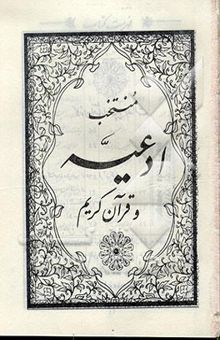 منتخب
ادعیّه
و قرآن کریم